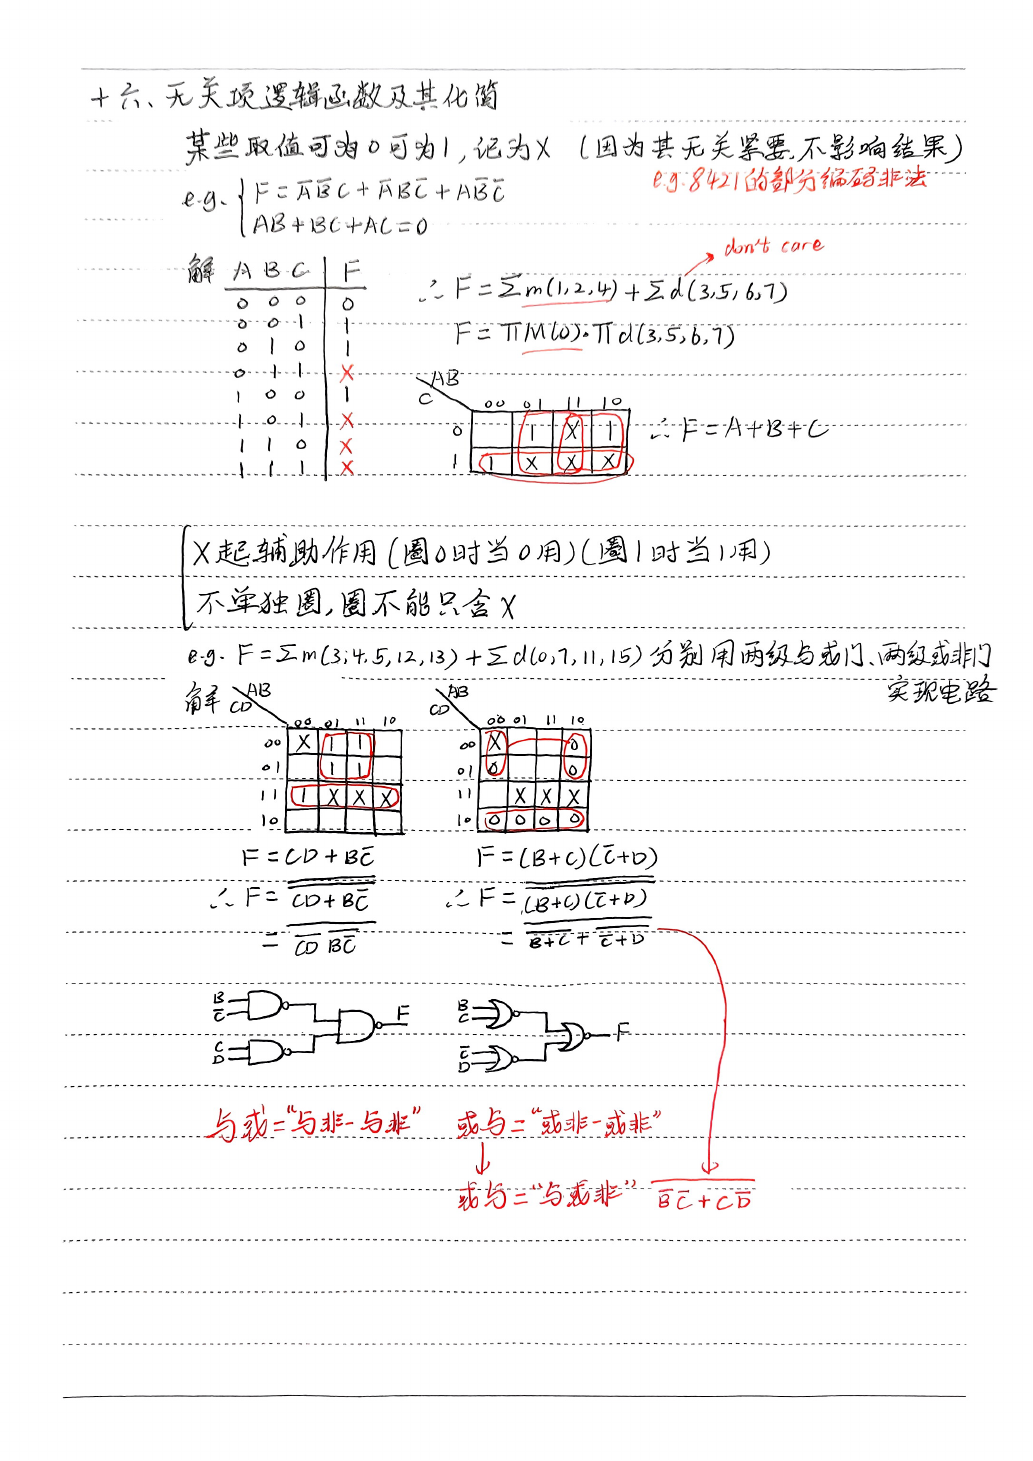 十六、无关项逻辑函数及其化简
某些取值可为0可为1,记为X (因为其无关紧要,不影响结果)
e.g.8421的部分编码非法
e.g. { F = A̅B̅C + A̅BC̅ + AB̅C̅
AB+BC+AC=0
解 A B C F
0 0 0 0
0 0 1 1
0 1 0 1
0 1 1 X
1 0 0 1
1 0 1 X
1 1 0 X
1 1 1 X
don't care
∴ F = Σm(1,2,4) + Σd(3,5,6,7)
F = ΠM(0)·Πd(3,5,6,7)
AB
C 00 01 11 10
0 1 X 1
1 1 X X X
∴ F = A+B+C
X起辅助作用(圈0时当0用)(圈1时当1用)
不单独圈,圈不能只含X
e.g. F = Σm(3,4,5,12,13) + Σd(0,7,11,15) 分别用两级与或门、两级或非门
实现电路
解 AB
CD 00 01 11 10
00 X 1 1
01 1 1
11 1 X X X
10
AB
CD 00 01 11 10
00 X 0
01 0 0
11 X X X
10 0 0 0 0
F = CD + BC̅
∴ F = \overline{\overline{CD+BC̅}}
= \overline{\overline{CD} \overline{BC̅}}
F = (B+C)(C̅+D)
∴ F = \overline{\overline{(B+C)(C̅+D)}}
= \overline{\overline{B+C} + \overline{C̅+D}}
B
C̅
C
D
F
B
C
C̅
D
F
与或="与非-与非" 或与="或非-或非"
↓
或与="与或非" \overline{B̅C̅+CD̅}